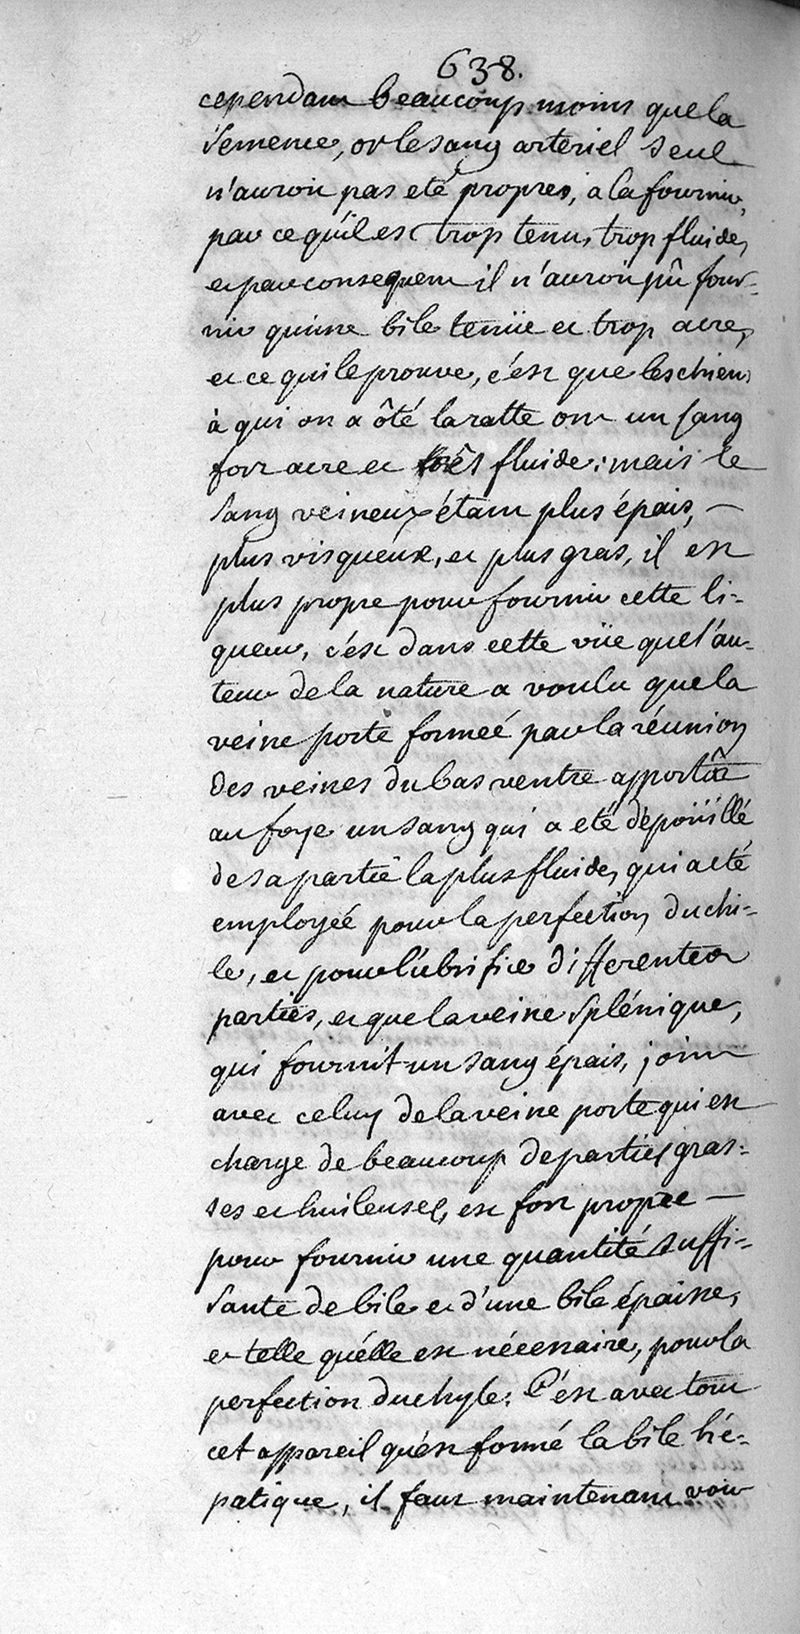 638.
cependant beaucoup moins que la
semence, or le sang arteriel seul
n'auroit pas eté propres, a la fournir,
par ce qu'il est trop tenu, trop fluide,
et par consequent il n'auroit pû four-
nir qu'une bile tenüe et trop acre,
et ce qui le prouve, c'est que les chiens
à qui on a ôté la ratte ont un sang
fort acre et très fluide: mais le
sang veineux étant plus épais, —
plus visqueux, et plus gras, il est
plus propre pour fournir cette li-
queur, c'est dans cette vüe que l'au-
teur de la nature a voulu que la
veine porte formeé par la réunion
des veines du bas ventre apportât
au foye un sang qui a eté dépoüillé
de sa partie la plus fluide, qui a eté
employée pour la perfection du chi-
le, et pour lubrifier differentes
parties, et que la veine splénique,
qui fournit un sang épais, joint
avec celuy de la veine porte qui est
chargé de beaucoup de parties gras-
ses et huileuses, est fort propre —
pour fournir une quantité suffi-
sante de bile et d'une bile épaisse,
et telle qu'élle est nécessaire, pour la
perfection du chyle. C'est avec tout
cet appareil qu'est formé la bile hé-
patique, il faut maintenant voir